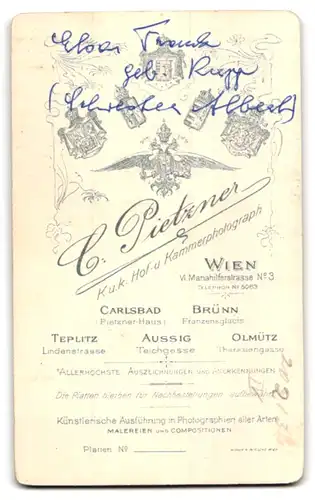 geb Rupp
(Schwester Albert)
C. Pietzner
K.u.k. Hof- u. Kammerphotograph
WIEN
VI. Mariahilferstrasse Nº 3.
TELEPHON Nº 5063
CARLSBAD BRÜNN
(Pietzner-Haus) Franzensglacis
TEPLITZ AUSSIG OLMÜTZ
Lindenstrasse Teichgasse Theresiengasse
ALLERHÖCHSTE AUSZEICHNUNGEN UND ANERKENNUNGEN
Die Platten bleiben für Nachbestellungen aufbewahrt
Künstlerische Ausführung in Photographien aller Arten
MALEREIEN UND COMPOSITIONEN
Platten Nº